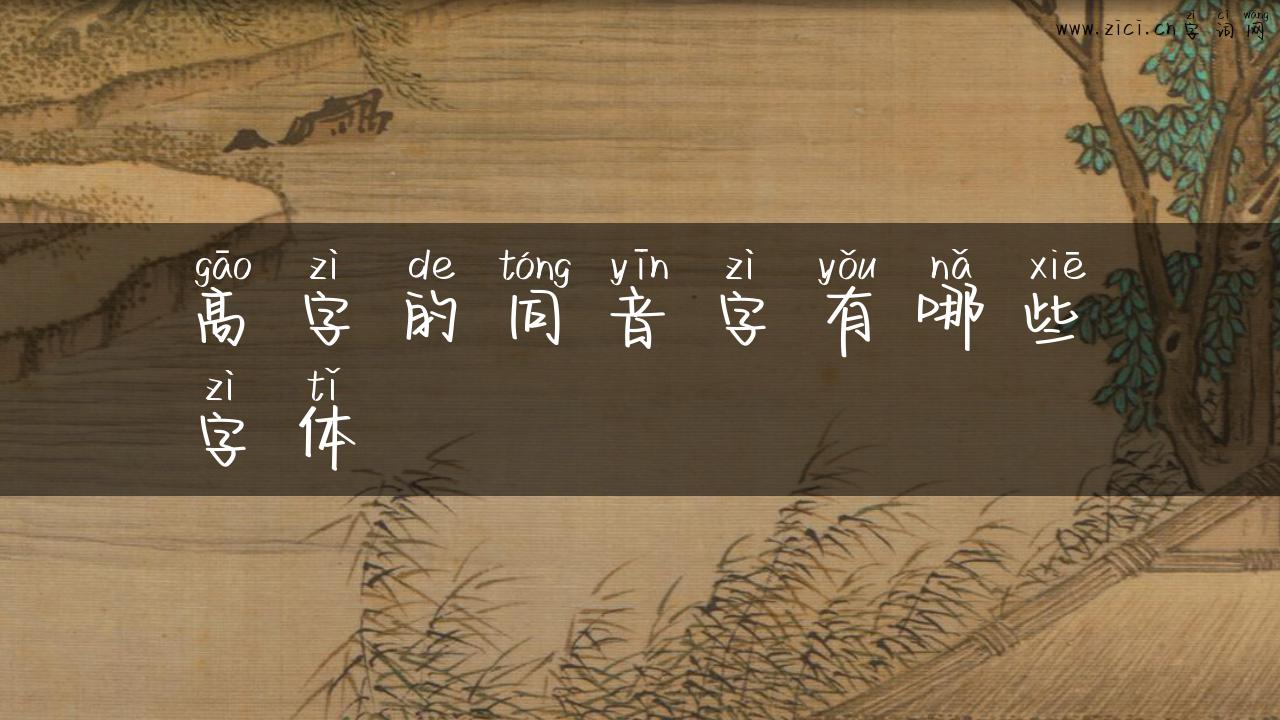 zì cí wǎng
www.zici.cn字词网
gāo zì de tóng yīn zì yǒu nǎ xiē
高字的同音字有哪些
zì tǐ
字体